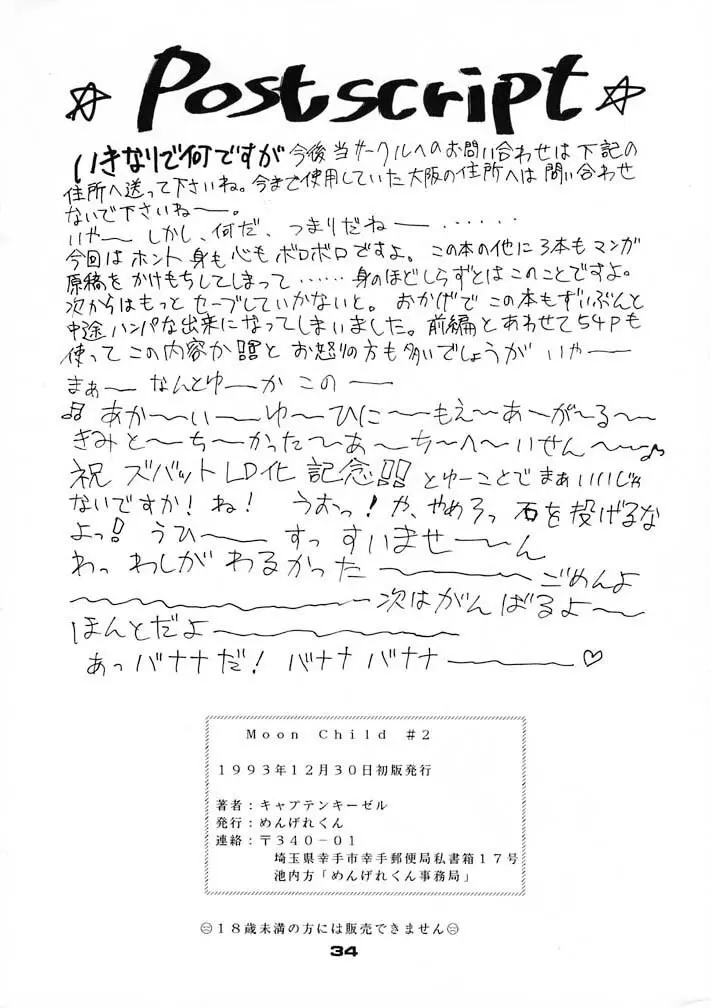 ☆ Postscript ☆
いきなりで何ですが 今後当サークルへのお問い合わせは下記の
住所へ送って下さいね。今まで使用していた大阪の住所へは問い合わせ
ないで下さいね――。
いや～ しかし、何だ、つまりだね――‥‥‥
今回はホント身も心もボロボロですよ。この本の他に3本もマンガ
原稿をかけもちしてしまって‥‥‥身のほどしらずとはこのことですよ。
次からはもっとセーブしていかないと。おかげでこの本もずいぶんと
中途ハンパな出来になってしまいました。前編とあわせて54Pも
使ってこの内容か!!!とお怒りの方も多いでしょうが いやー――
まぁ～ なんとゆ～か この ――
♫ あか～～い――ゆ～ひに～～もえ～あ～が～る～～
きみと～ち～かった～あ～ち～へ～いせん～～～♪
祝 ズバットLD化記念!! とゆーことでまぁいいじゃ
ないですか！ね！ うおっ！や、やめろっ 石を投げるな
よっ! うひ～―― すっすいませ――ん
わっ わしがわるかった――～～～ごめんよ
～～～～～～～～次はがんばるよ～～
ほんとだよ～～～～～～
あっバナナだ！ バナナバナナ――～～♡
Moon Child ＃2
1993年12月30日初版発行
著者：キャプテンキーゼル
発行：めんげれくん
連絡：〒340-01
埼玉県幸手市幸手郵便局私書箱17号
池内方「めんげれくん事務局」
18歳未満の方には販売できません
34